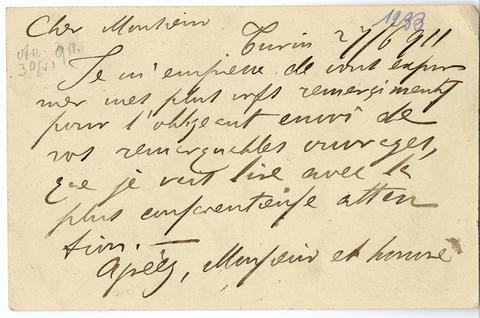 Cher Monsieur
1933
Turin 27/6 911
911.
30/VI
Je m'empresse de vous expri
mer mes plus vifs remerciments
pour l'obligeant envoi de
vos remarquables ouvrages,
que je vais lire avec la
plus consciencieuse atten
tion. —
Agréez, Monsieur et honoré